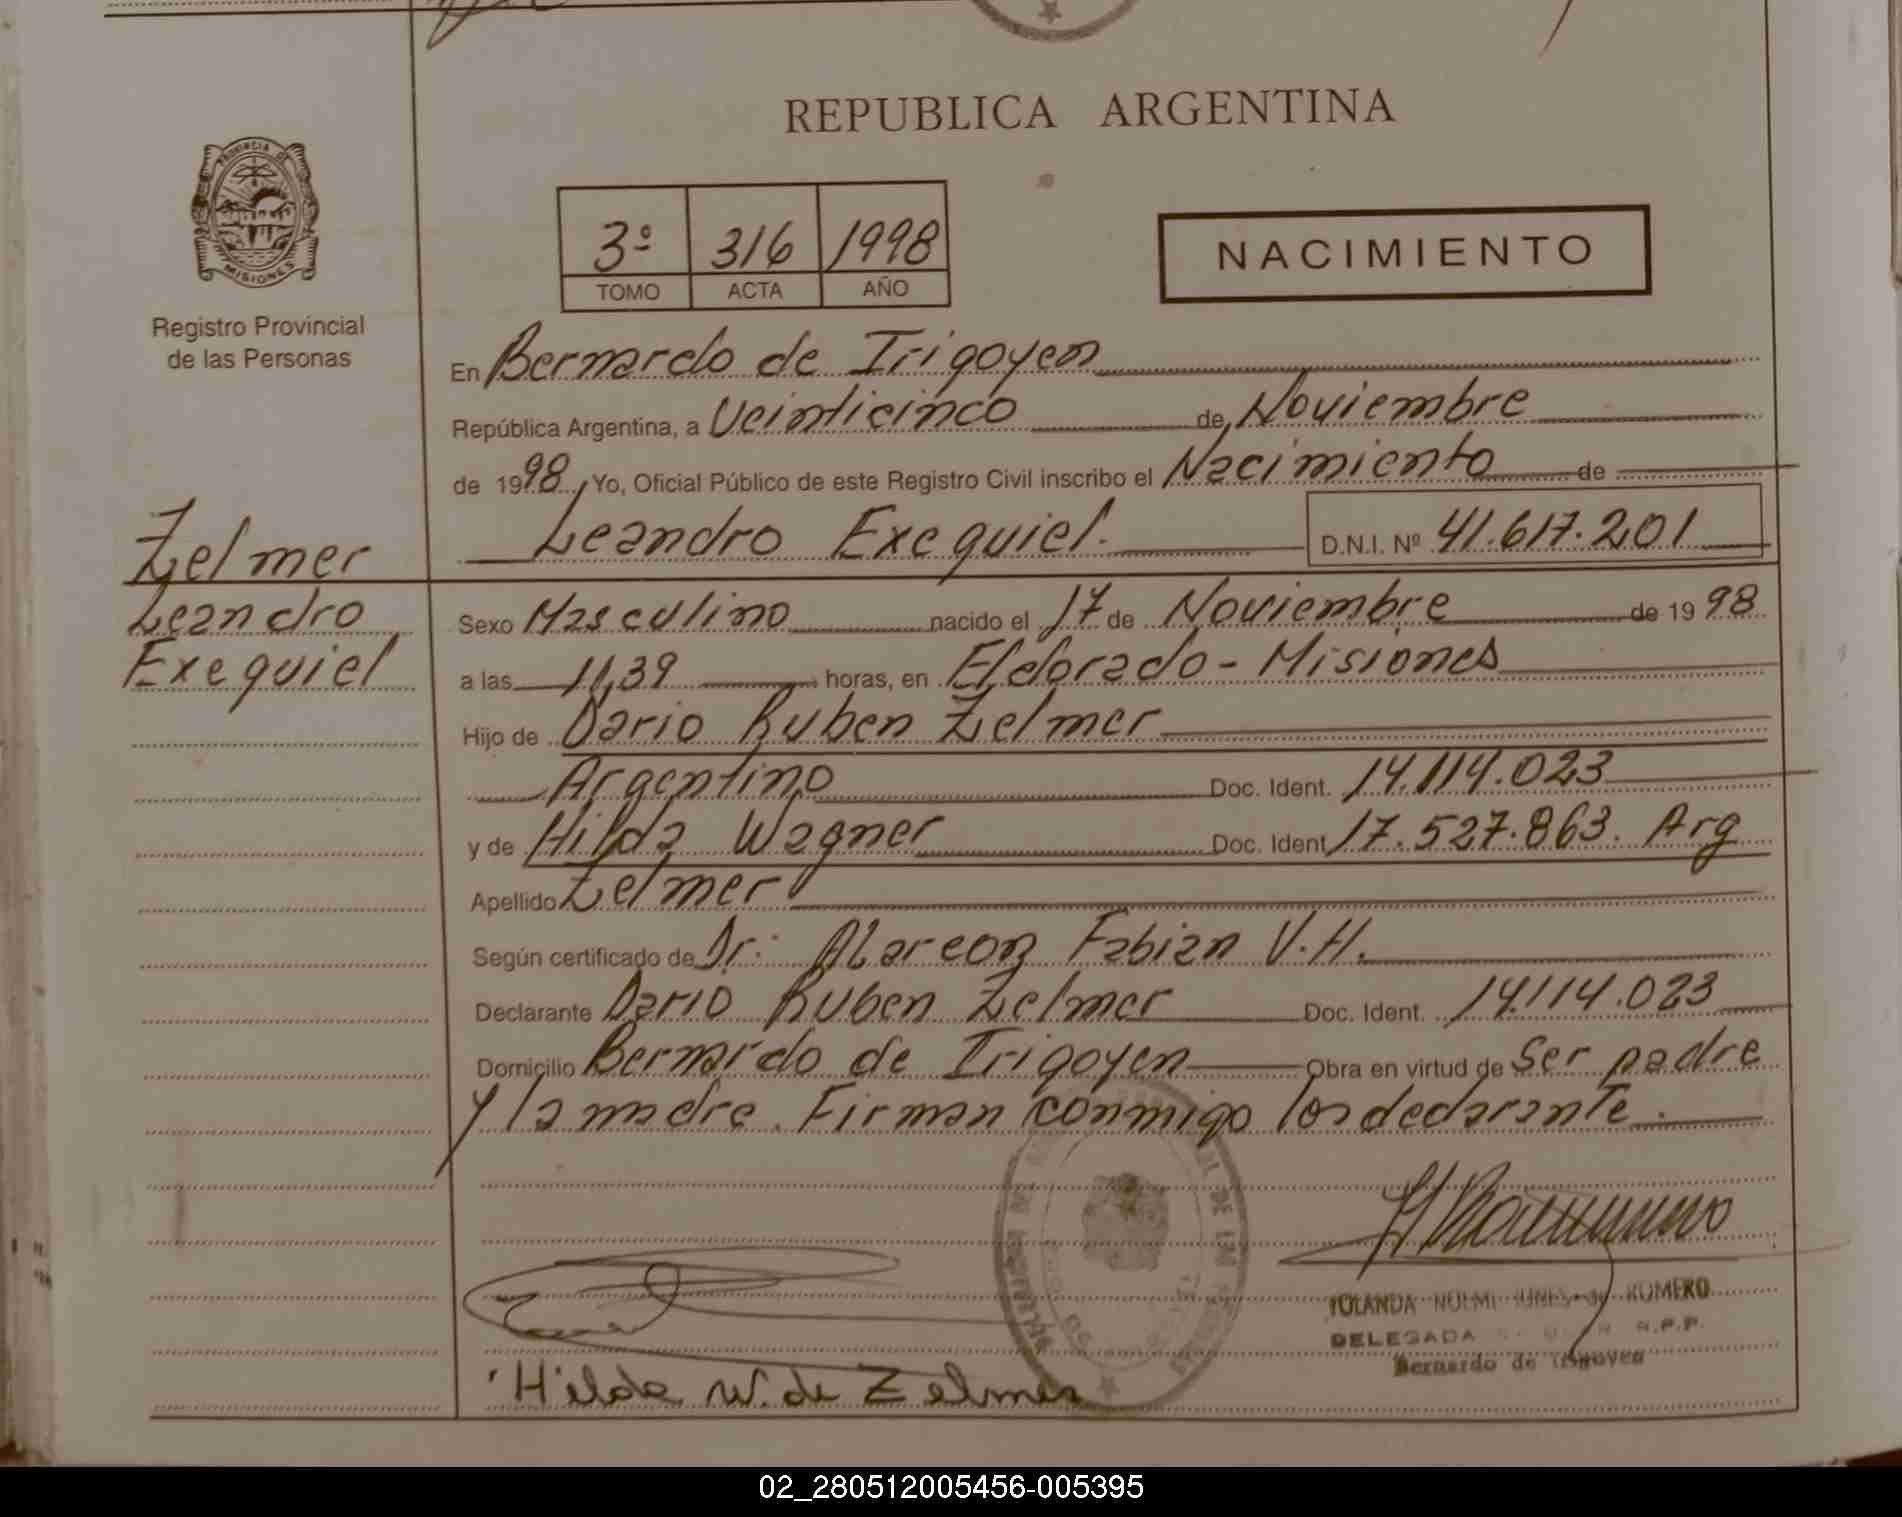 REPUBLICA ARGENTINA
PROVINCIA DE
MISIONES
Registro Provincial
de las Personas
3º 316 1998
TOMO ACTA AÑO
NACIMIENTO
En Bernardo de Irigoyen
República Argentina, a Veinticinco de Noviembre
de 1998, Yo, Oficial Público de este Registro Civil inscribo el Nacimiento de
Leandro Exequiel. D.N.I. Nº 41.617.201
Zelmer
Leandro
Exequiel
Sexo Masculino nacido el 17 de Noviembre de 1998
a las 11,39 horas, en Eldorado - Misiones
Hijo de Dario Ruben Zelmer
Argentino Doc. Ident. 14.114.023
y de Hilda Wagner Doc. Ident. 17.527.863. Arg
Apellido Zelmer
Según certificado de Dr: Alarcon Fabian V.H.
Declarante Dario Ruben Zelmer Doc. Ident. 14.114.023
Domicilio Bernardo de Irigoyen Obra en virtud de Ser padre
y la madre. Firman conmigo los declarante.
YOLANDA NOEMI de ROMERO
DELEGADA R.P.P.
Bernardo de Irigoyen
Hilda W. de Zelmer
02_280512005456-005395